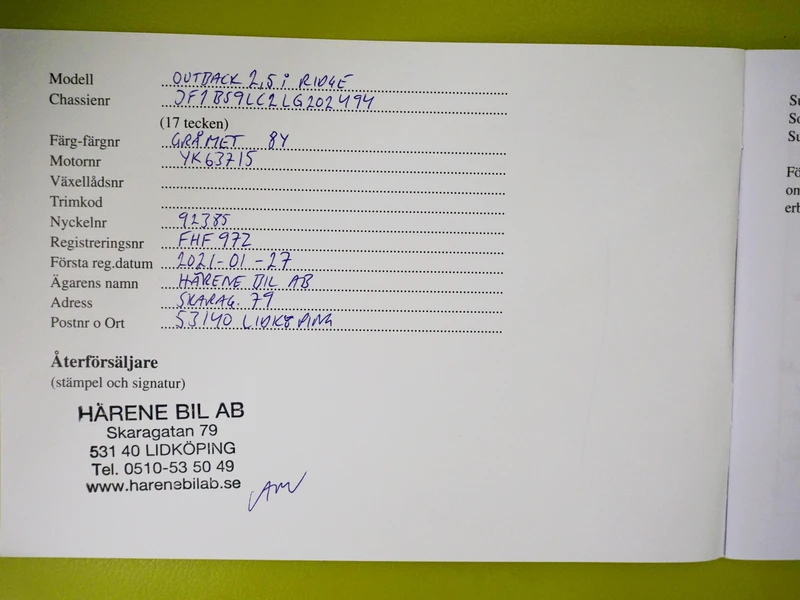 Modell OUTBACK 2,5i RIDGE
Chassienr JF1BS9LC2LG202494
(17 tecken)
Färg-färgnr GRÅMET 8Y
Motornr YK63715
Växellådsnr
Trimkod
Nyckelnr 91385
Registreringsnr FHF972
Första reg.datum 2021-01-27
Ägarens namn HÄRENE BIL AB
Adress SKARAG. 79
Postnr o Ort 53140 LIDKÖPING
Återförsäljare
(stämpel och signatur)
HÄRENE BIL AB
Skaragatan 79
531 40 LIDKÖPING
Tel. 0510-53 50 49
www.harenebilab.se